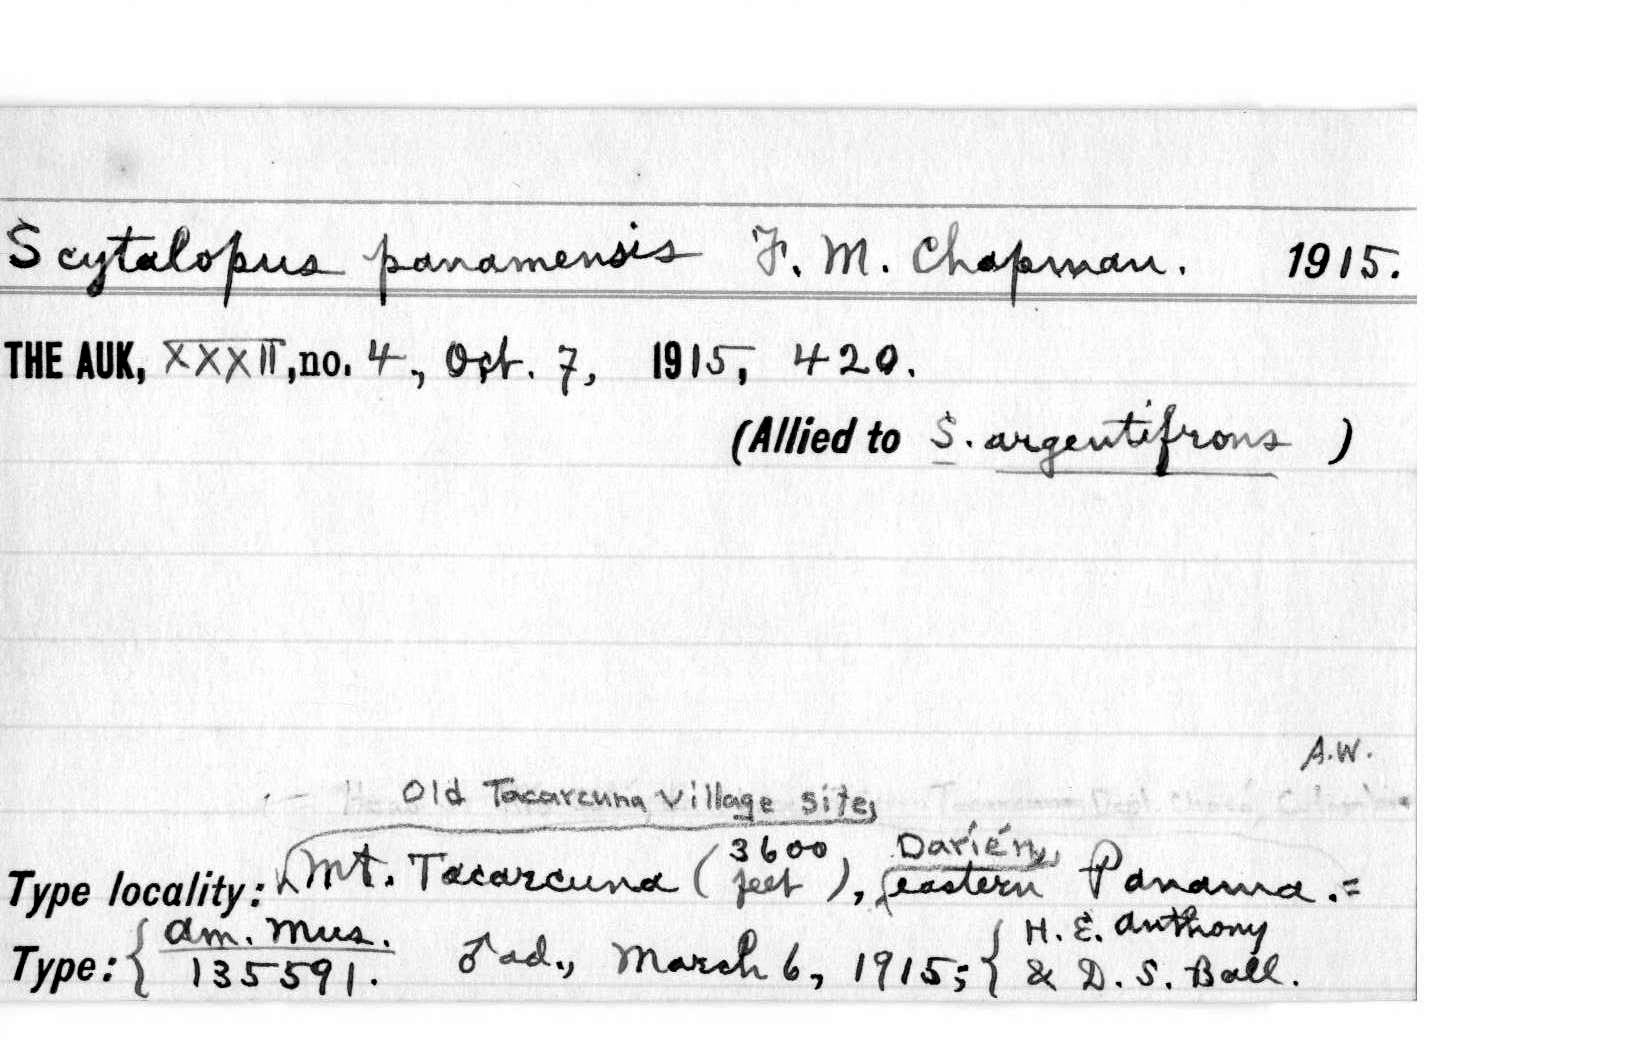 Scytalopus panamensis F. M. Chapman. 1915.
THE AUK, XXXII, no. 4., Oct. 7, 1915, 420.
(Allied to S. argentifrons )
A.W.
Old Tacarcuna Village site,
Type locality: Mt. Tacarcuna (3600 feet), Darién, eastern Panama.=
Type: { Am. Mus. 135591. ♂ad., March 6, 1915; { H. E. Anthony & D. S. Ball.